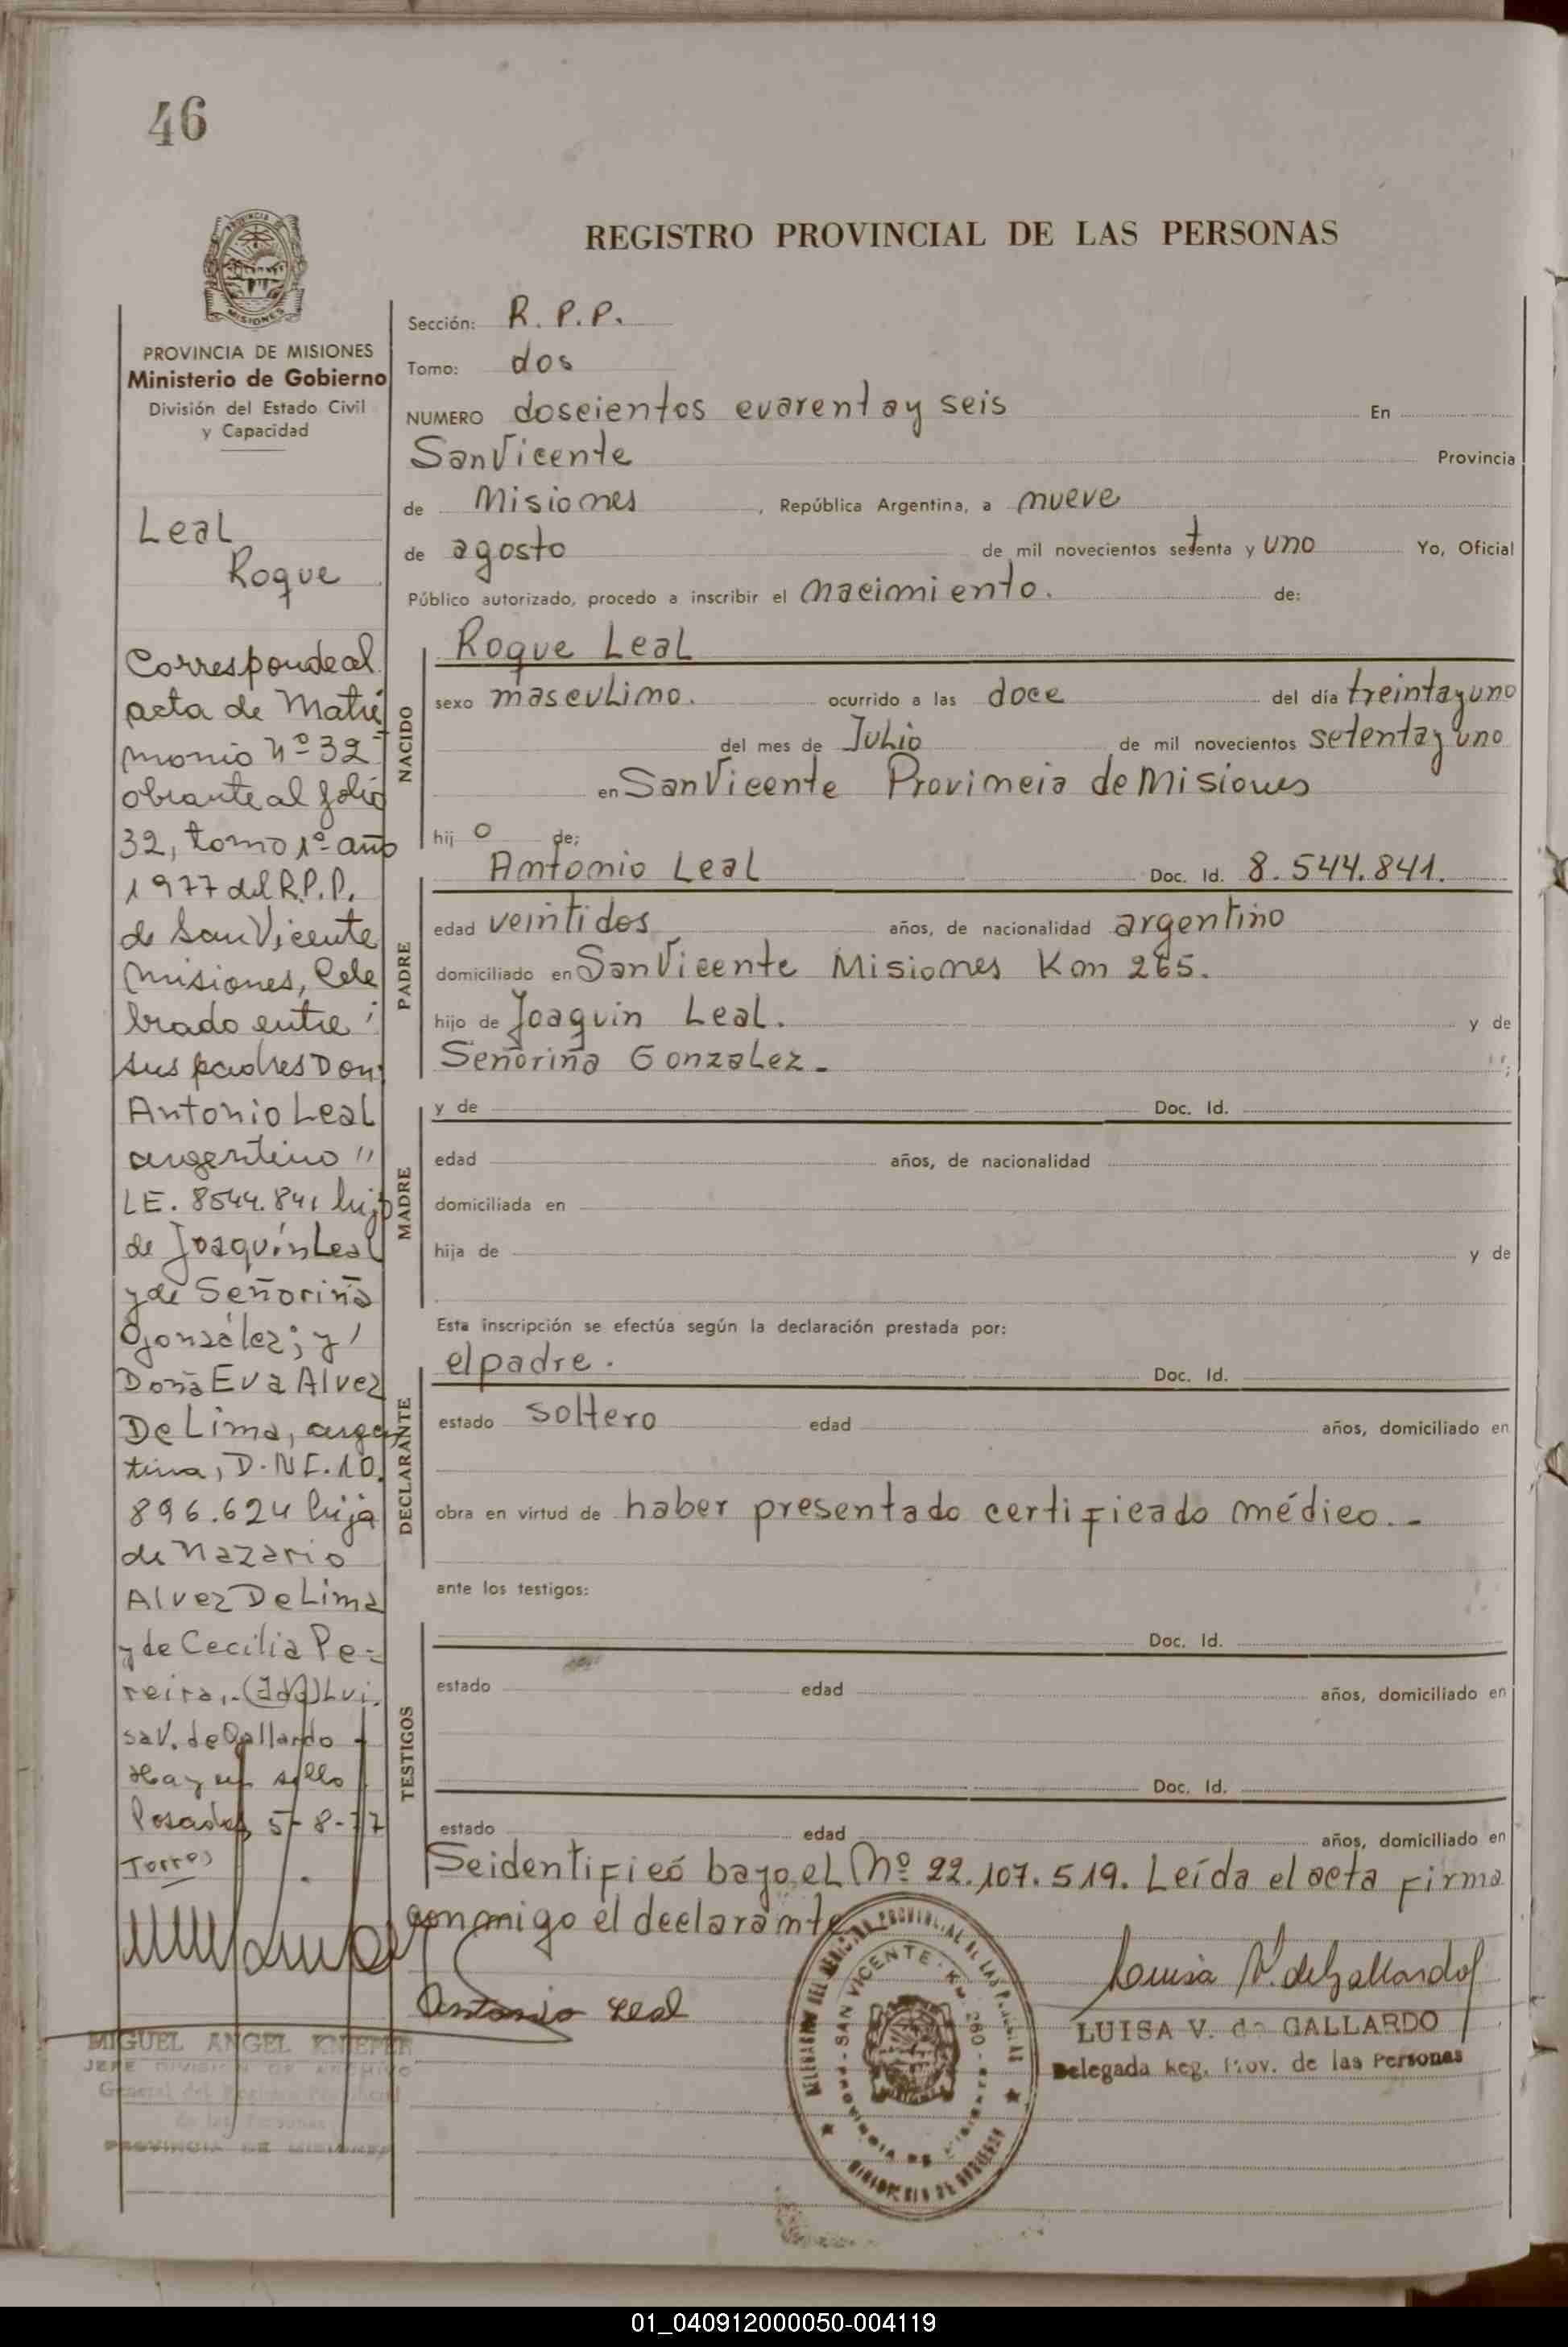 46
REGISTRO PROVINCIAL DE LAS PERSONAS
PROVINCIA DE MISIONES
Ministerio de Gobierno
División del Estado Civil
y Capacidad
Leal
Roque
Corresponde al
acta de Matri
monio Nº 32
obrante al folio
32, tomo 1º año
1977 del R.P.P.
de San Vicente
Misiones, Cele
brado entre
sus padres Don
Antonio Leal
argentino "
LE. 8544.841 hijo
de Joaquín Leal
y de Señoriña
González; y
Doña Eva Alvez
De Lima, argen
tina, D.N.I. 10.
896.624 hija
de Nazario
Alvez De Lima
y de Cecilia Pe=
reira.- (Fdo) Lui
sa V. de Gallardo
Hay un sello
Posadas 5-8-77
Torres
MIGUEL ANGEL
JEFE DIVISION DE ARCHIVO
General del Registro Provincial
de las Personas
PROVINCIA DE MISIONES
Sección: R. P. P.
Tomo: dos
NUMERO doscientos cuarenta y seis En
San Vicente Provincia
de Misiones, República Argentina, a nueve
de agosto de mil novecientos setenta y uno Yo, Oficial
Público autorizado, procedo a inscribir el nacimiento. de:
NACIDO
Roque Leal
sexo masculino. ocurrido a las doce del día treinta y uno
del mes de Julio de mil novecientos setenta y uno
en San Vicente Provincia de Misiones
hij o de;
PADRE
Antonio Leal Doc. Id. 8.544.841.
edad veintidos años, de nacionalidad argentino
domiciliado en San Vicente Misiones Km 265.
hijo de Joaquin Leal. y de
Señoriña Gonzalez.-
MADRE
y de Doc. Id.
edad años, de nacionalidad
domiciliada en
hija de y de
Esta inscripción se efectúa según la declaración prestada por:
DECLARANTE
el padre. Doc. Id.
estado soltero edad años, domiciliado en
obra en virtud de haber presentado certificado médico.-
ante los testigos:
TESTIGOS
Doc. Id.
estado edad años, domiciliado en
Doc. Id.
estado edad años, domiciliado en
Se identificó bajo el Nº 22.107.519. Leída el acta firma
conmigo el declarante
Antonio Leal
SAN VICENTE
Luisa V. de Gallardo
LUISA V. de GALLARDO
Delegada Reg. Prov. de las Personas
01_040912000050-004119